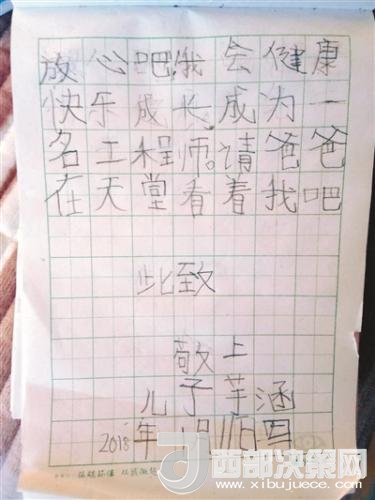 放心吧,我会健康
快乐成长,成为一
名工程师。请爸爸
在天堂看着我吧
此致
敬上
儿子芋涵
2018年
西部决策网